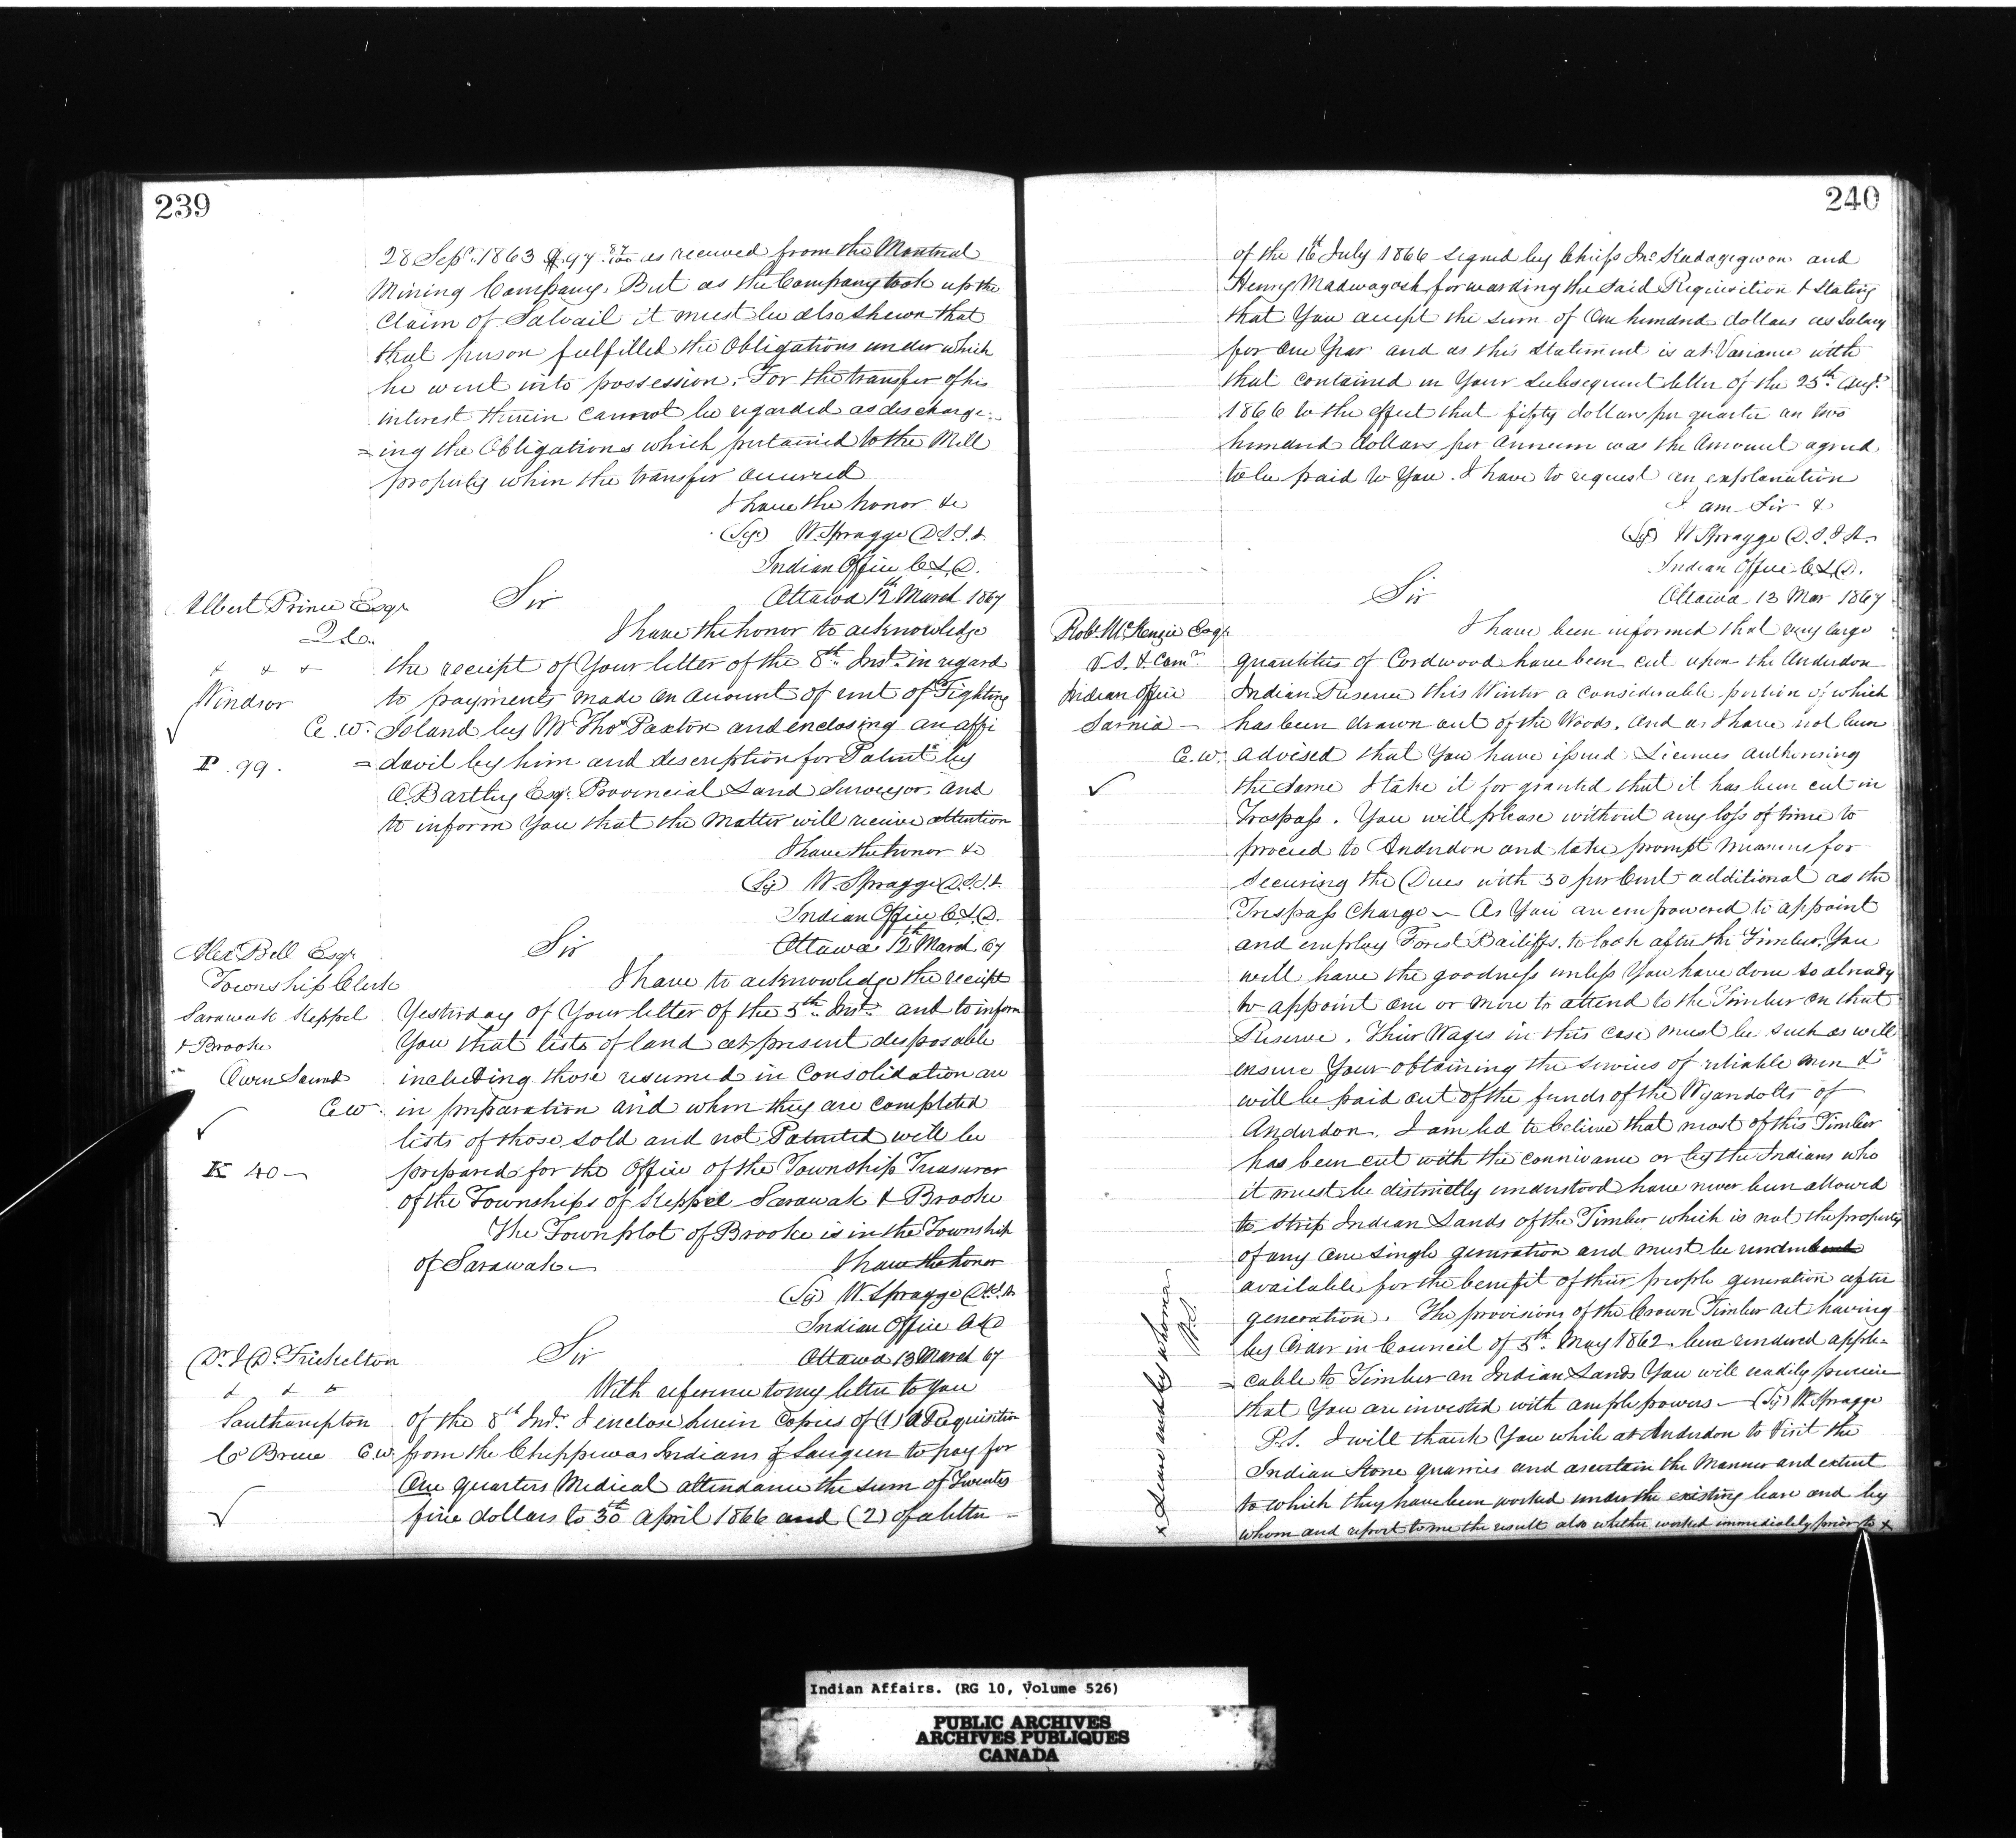 239
28 Sepr. 1863 $97 87/100 as received from the Montreal
Mining Company. But as the Company took up the
Claim of Salvail it must be also shewn that
that person fulfilled the Obligations under which
he went into possession. For the transfer of his
interest therein cannot be regarded as discharge-
=ing the Obligations which pertained to the Mill
property when the transfer occurred
I have the honor &c
(Sg) W. Spragge D.S.I.A.
Indian Office C.L.D.
Ottawa 12th March 1867
Albert Prince Esqr
Q.C.
& & &
Windsor
C.W.
P. 99.
Sir
I have the honor to acknowledge
the receipt of Your letter of the 8th Inst. in regard
to payments made on account of rent of Fighting
Island by Mr Thos Paxton and enclosing an affi
=davit by him and description for Patent by
O. Bartley Esqr. Provincial Land Surveyor, and
to inform You that the Matter will receive attention
I have the honor &c
(Sg) W. Spragge D.S.I.A.
Indian Office C.L.D.
Ottawa 12th March 67
Alex Bell Esqr
Township Clerk
Sarawak Keppel
& Brooke
Owen Sound
C.W.
K 40 —
Sir
I have to acknowledge the receipt
Yesterday of Your letter of the 5th Inst. and to inform
You that lists of land at present disposable
including those resumed in Consolidation are
in preparation and when they are completed
lists of those sold and not Patented will be
prepared for the Office of the Township Treasurer
of the Townships of Keppel Sarawak & Brooke
The Town plot of Brooke is in the Township
of Sarawak —
I have the honor
(Sg) W. Spragge D.S.I.A
Indian Office C.L.D
Ottawa 13 March 67
& & &
Southampton
Co Bruce C.W.
Sir
With reference to my letter to you
of the 8th Inst. I enclose herein Copies of (1) a Requisition
from the Chippewas Indians of Saugeen to pay for
One quarters Medical attendance the sum of Twenty
five dollars to 30th April 1866 and (2) of a letter —
240
of the 16th July 1866 signed by Chiefs Jno Kadagegwon and
Henry Madwayosh forwarding the said Requisition & stating
that You accept the sum of One hundred dollars as Salary
for One Year and as this statement is at Variance with
that contained in Your subsequent letter of the 25th Augt.
1866 to the effect that fifty dollars per quarter or two
hundred dollars per Annum was the Amount agreed
to be paid to You. I have to request an explanation
I am Sir &
(Sg) W Spragge D.S.I.A.
Indian Office C.L.D.
Ottawa 13 Mar 1867
Robt McKenzie Esqr
V.S. & Comr.
Indian Office
Sarnia —
C.W.
Sir
I have been informed that very large
quantities of Cordwood have been cut upon the Anderdon
Indian Reserve this Winter a considerable portion of which
has been drawn out of the Woods. And as I have not been
advised that You have issued Licenses authorising
the same I take it for granted that it has been cut in
Trespass. You will please without any loss of time to
proceed to Anderdon and take prompt measures for
securing the Dues with 50 per Cent additional as the
Trespass Charge — As You are empowered to appoint
and employ Forest Bailiffs. to look after the Timber. You
will have the goodness unless You have done so already
to appoint one or more to attend to the Timber on that
Reserve. Their Wages in this case must be such as will
ensure Your obtaining the services of reliable men &
will be paid out of the funds of the Wyandotts of
Anderdon. I am led to believe that most of this Timber
has been cut with the connivance or by the Indians who
it must be distinctly understood have never been allowed
to strip Indian Lands of the Timber which is not the property
of any One single generation and must be
available for the benefit of their people generation after
generation. The provisions of the Crown Timber act having
by Order in Council of 5th May 1862. been rendered appli-
=cable to Timber on Indian Lands You will readily perceive
that You are invested with ample powers — (Sg) W Spragge
P.S. I will thank You while at Anderdon to Visit the
Indian Stone quarries and ascertain the Manner and extent
to which they have been worked under the existing lease and by
whom and report to me the result also whether worked immediately prior to x
x lease and by whom
W.S.
Indian Affairs. (RG 10, Volume 526)
PUBLIC ARCHIVES
ARCHIVES PUBLIQUES
CANADA